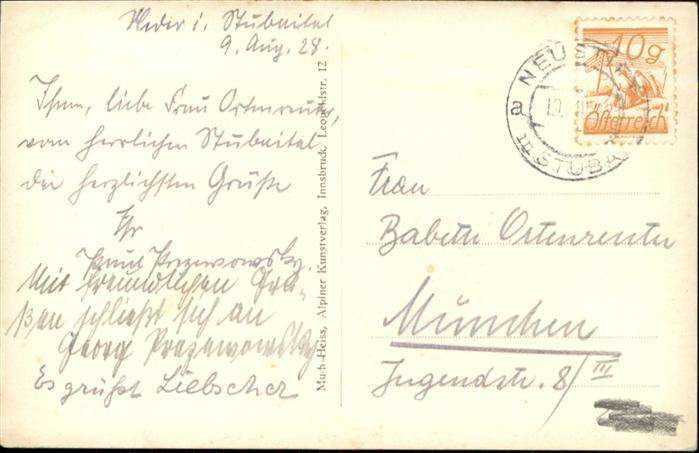 i. Stubaital
9. Aug. 28.
Ihnen, liebe Frau Ortenreuter,
vom herrlichen Stubaital
die herzlichsten Grüße
Ihr
Paul Przewowsky.
Mit freundlichen Grü-
ßen schließt sich an
Georg Przewowsky
Es grüßt Liebscher
Much-Heiss, Alpiner Kunstverlag, Innsbruck, Leopoldstr. 12
10 g
Österreich
NEUSTIFT
a
IM STUBAI
Frau
Babette Ortenreuter
München
Jugendstr. 8/III